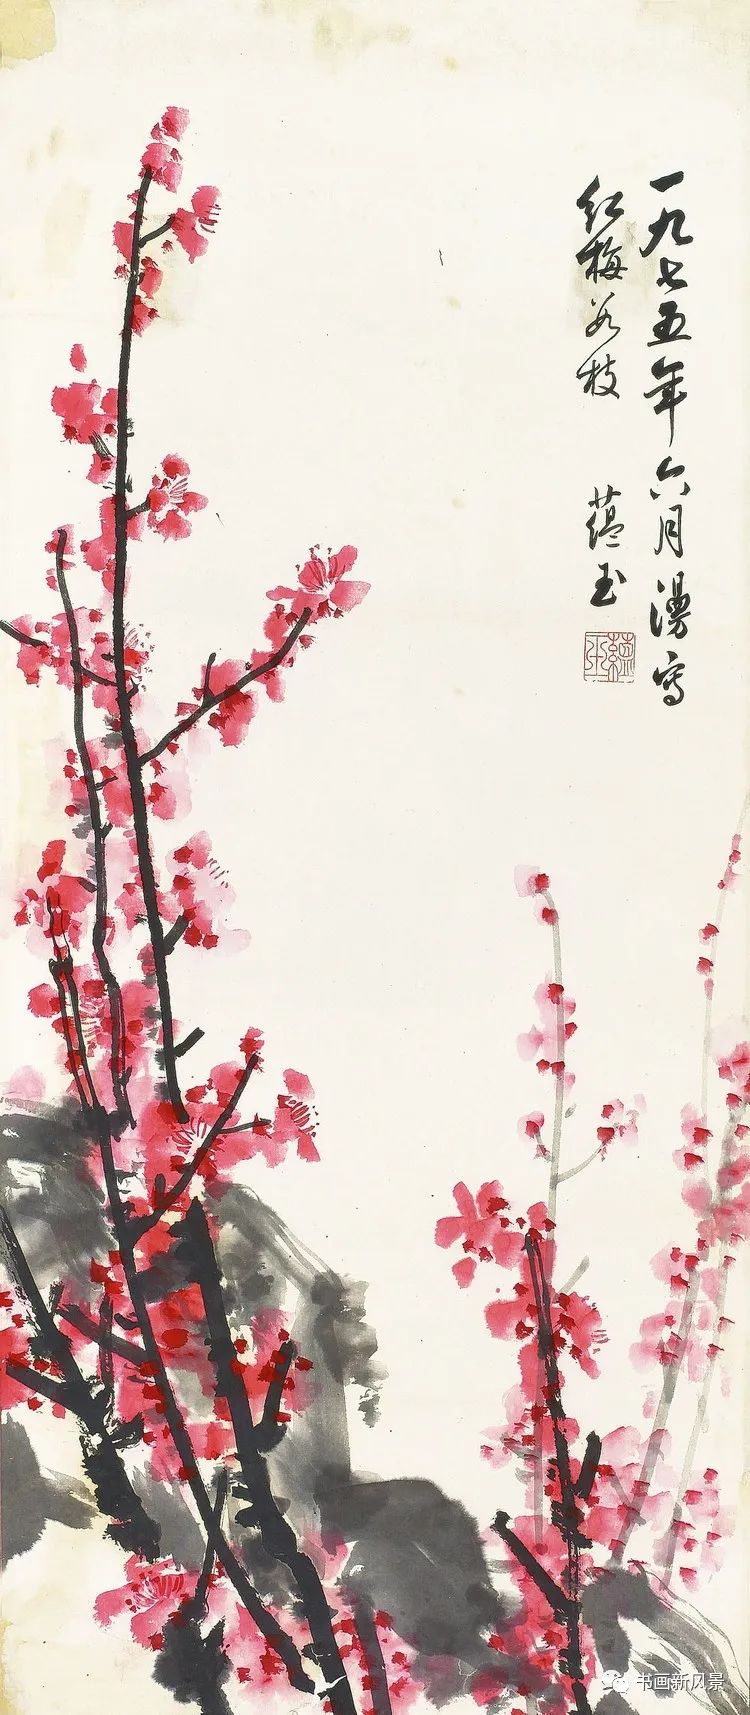 一九七五年六月漫写
红梅数枝
蕴玉
蕴玉
书画新风景